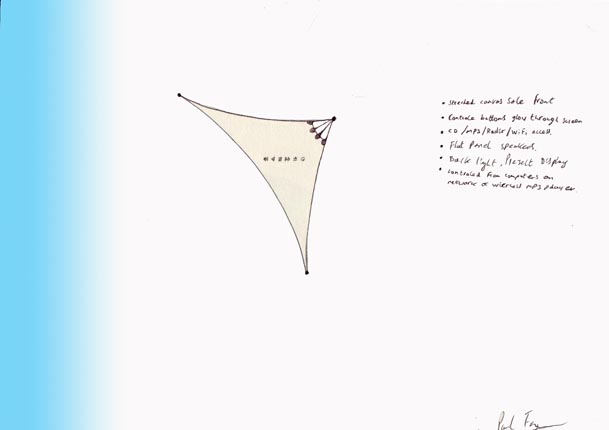 • streched canvas Sale front
• Controle buttons glow through screen
• CD/mp3/Radio/wifi access.
• Flat Panel speakers.
• Back light, Present Display
• controled from computers on
network or wireless mp3 player.
Paul